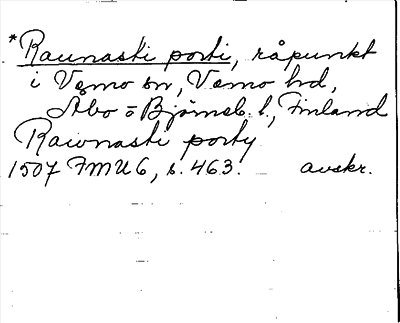 *Raunaski porti, råpunkt
i Vemo sn, Vemo hd,
Åbo o Björneb. l., Finland
Rawnaski porty
1507 FMU 6, s. 463. avskr.